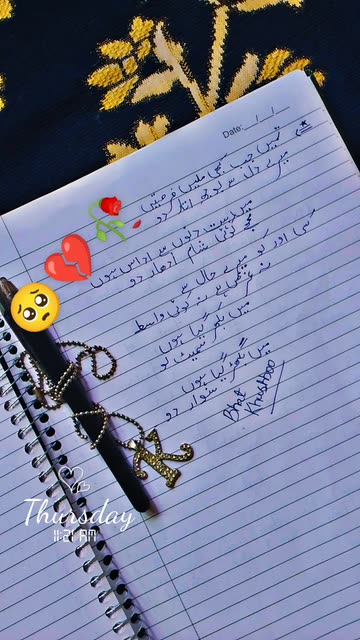 Date: / /
تمہیں جب کبھی ملیں فرصتیں
میرے دل سے بوجھ اتار دو
میں بہت دنوں سے اداس ہوں
مجھے کوئی شام ادھار دو
کسی اور کو میرے حال سے
نہ غرض ہے نہ کوئی واسطہ
میں بکھر گیا ہوں
سمیٹ لو
میں بگھڑ گیا ہوں
سنوار دو
Bhat
Khushboo
K
Thursday
11:21 AM